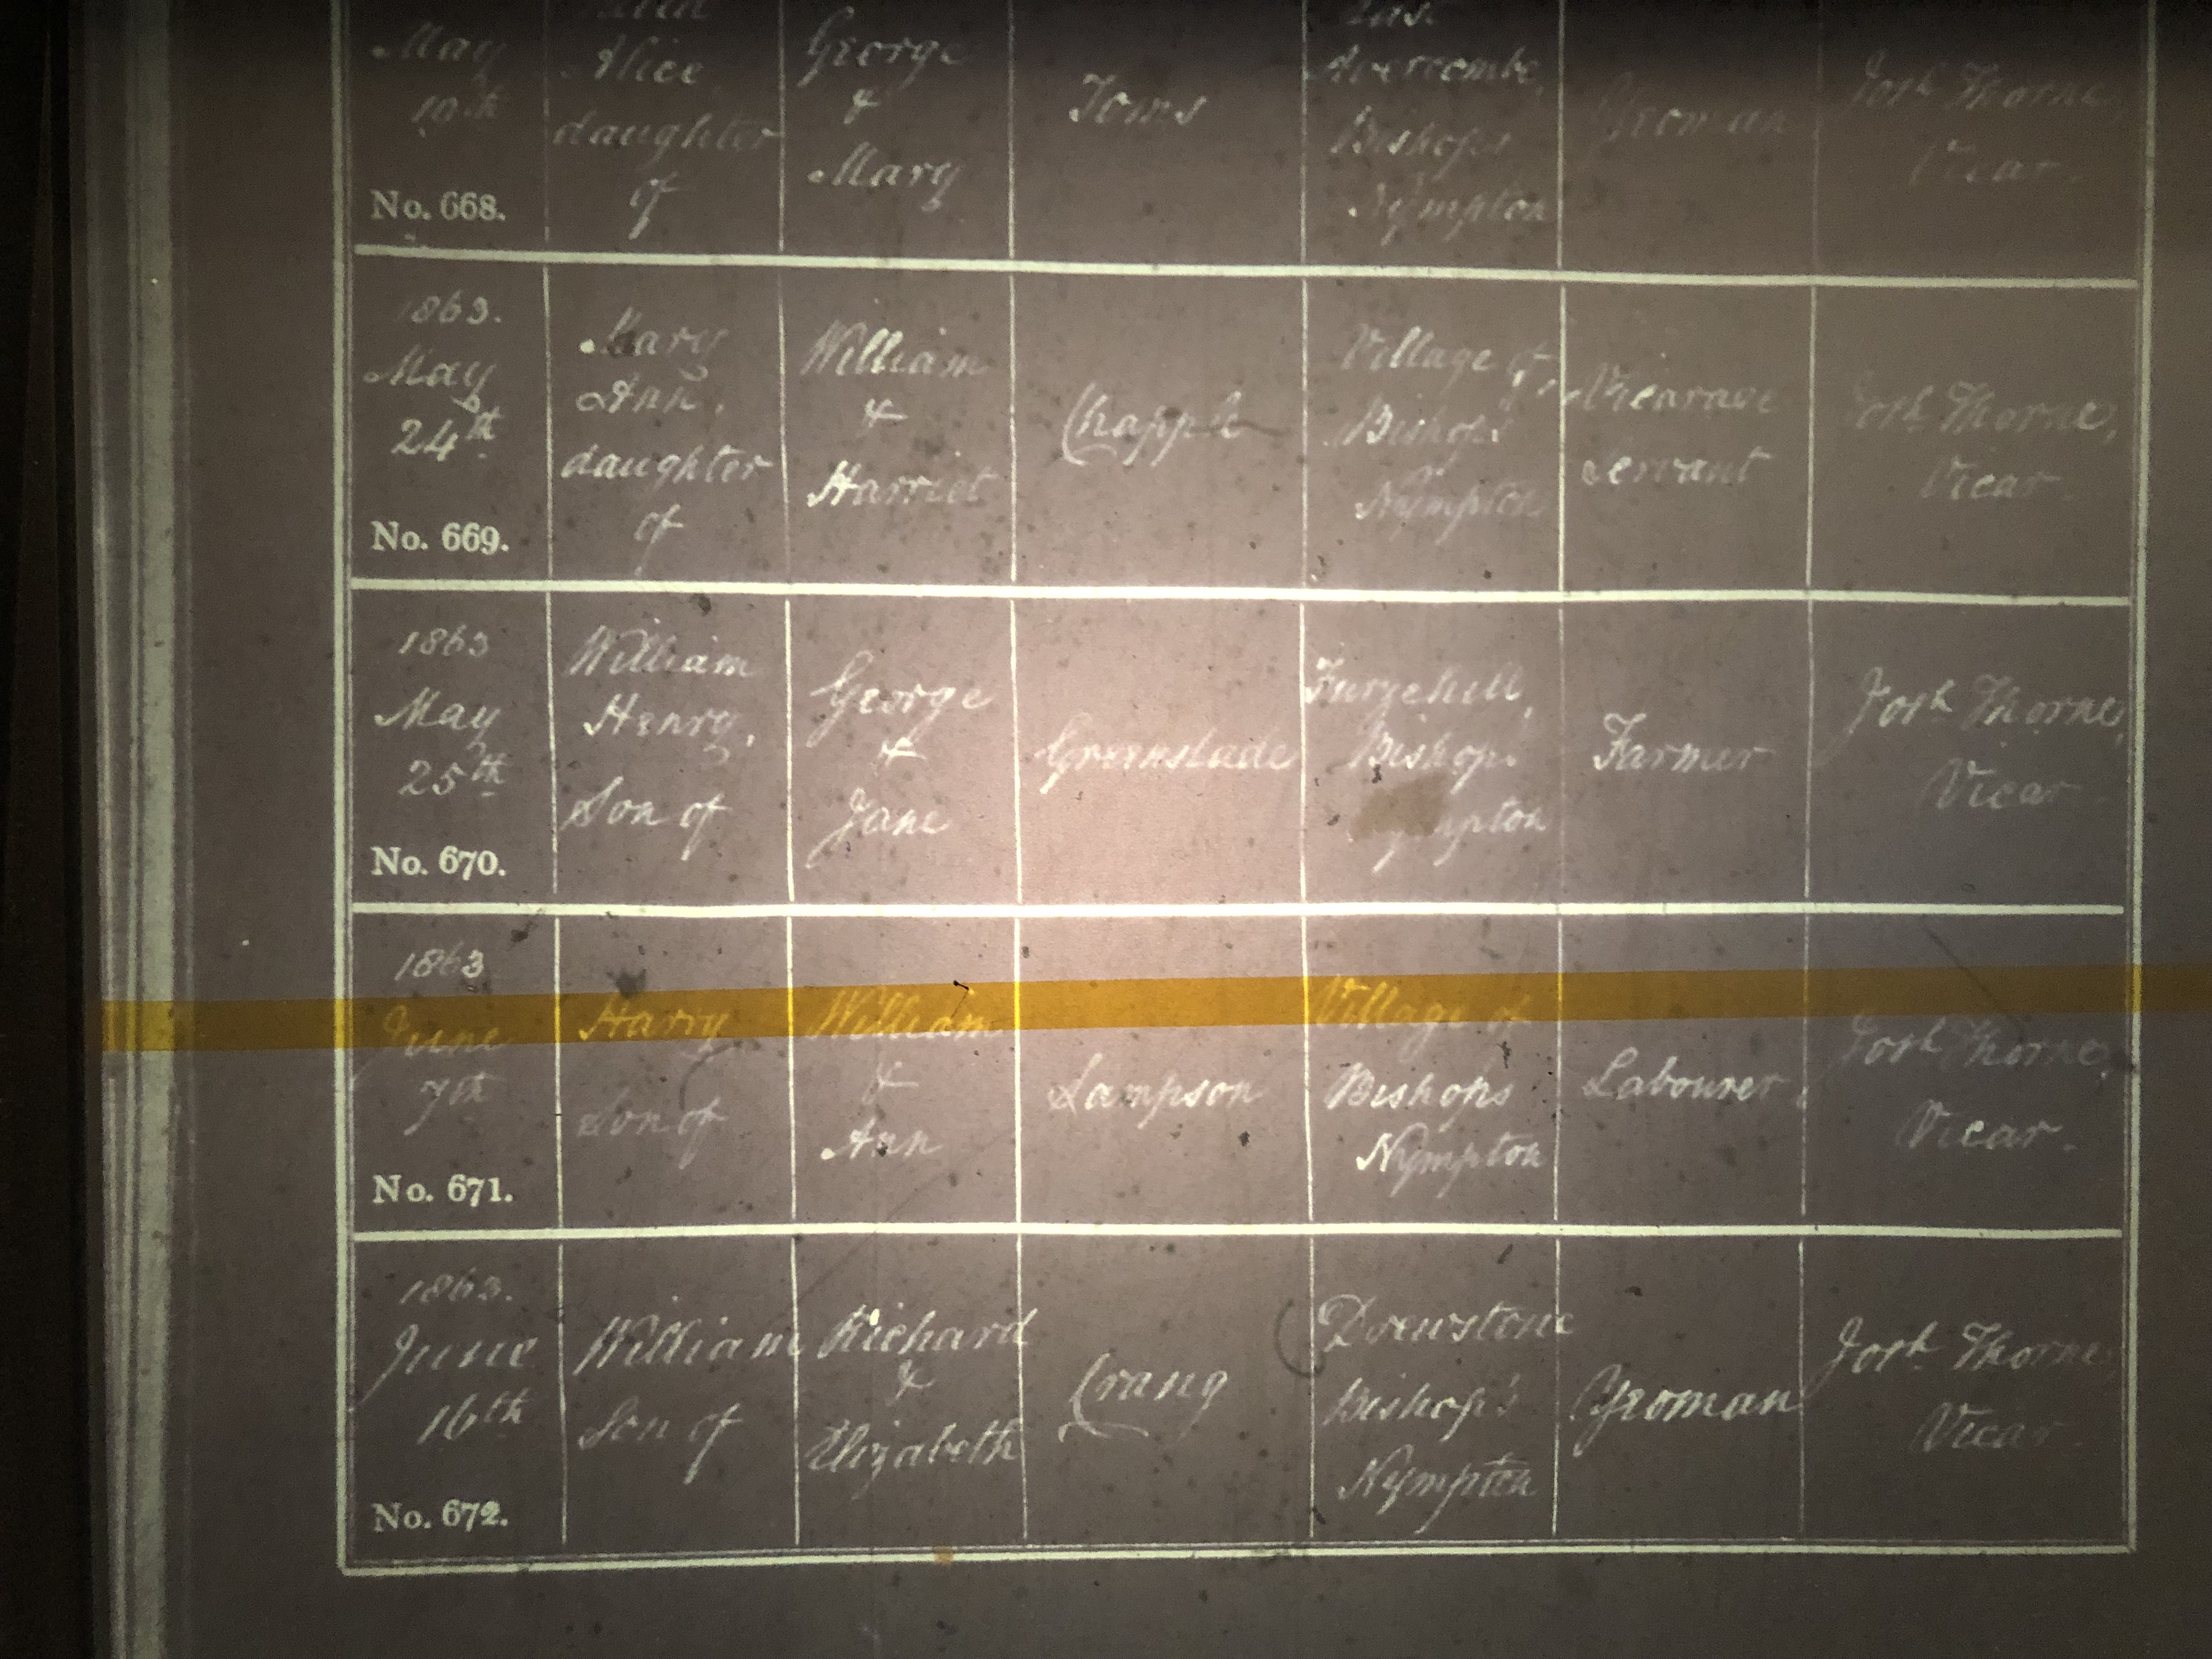 May
10th
No. 668.
Alice,
daughter
of
George
&
Mary
Toms
East
Avercombe,
Bishops
Nympton
Yeoman
Josh Thorne,
Vicar.
1863.
May
24th
No. 669.
Mary
Ann,
daughter
of
William
&
Harriet
Chapple
Village of
Bishops
Nympton
Vicarage
Servant
Josh Thorne,
Vicar.
1863
May
25th
No. 670.
William
Henry,
Son of
George
&
Jane
Greenslade
Furzehill,
Bishops
Nympton
Farmer
Josh Thorne,
Vicar
1863
June
7th
No. 671.
Harry
Son of
William
&
Ann
Sampson
Village of
Bishops
Nympton
Labourer
Josh Thorne,
Vicar.
1863.
June
16th
No. 672.
William
Son of
Richard
&
Elizabeth
Crang
Drewstone
Bishop's
Nympton
Yeoman
Josh Thorne,
Vicar.